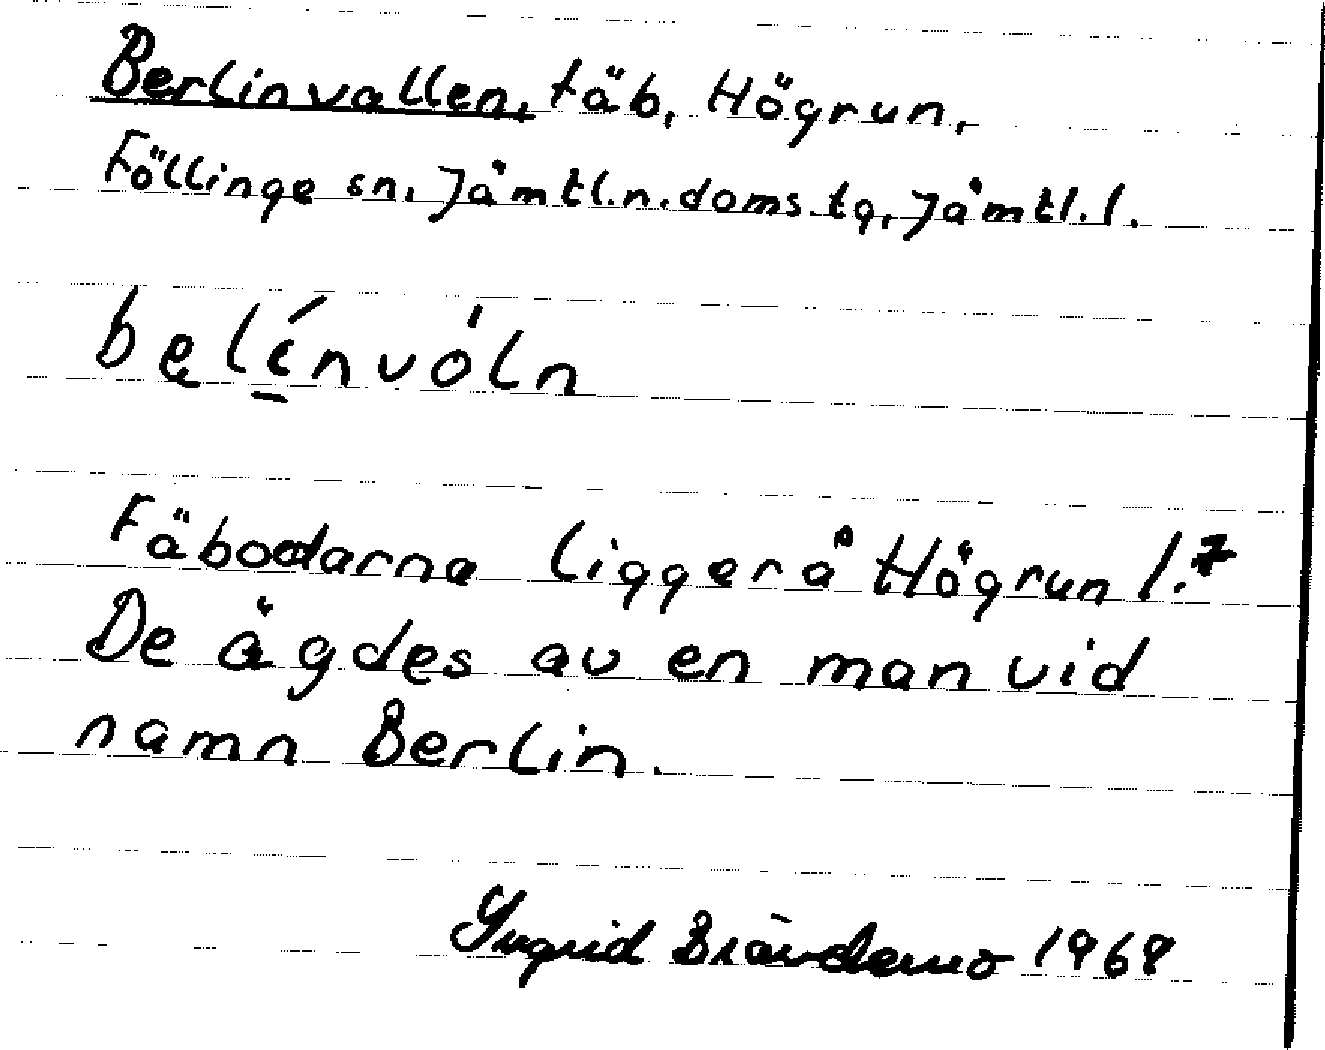 Berlinvallen, fäb, Högrun,
Föllinge sn. Jämtl.n.doms.tg, Jämtl.l.
belínvóln
Fäbodarna ligger å Högrun 1:7
De ägdes av en man vid
namn Berlin.
1968